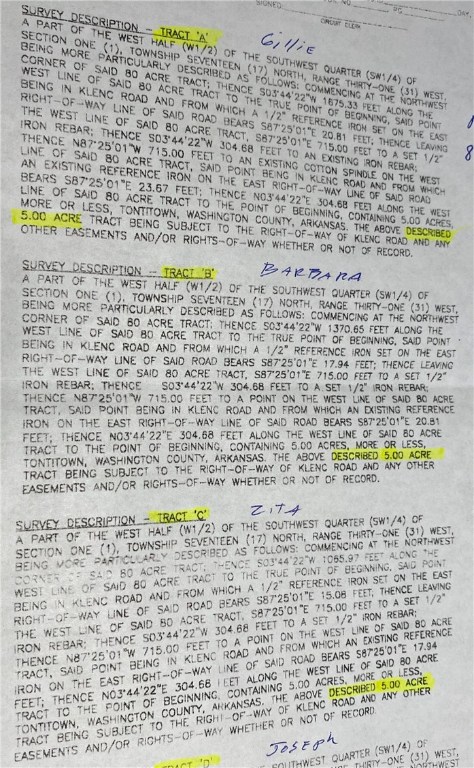 SIGNED
NO.
PG.
DATE
CIRCUIT CLERK
SURVEY DESCRIPTION - TRACT 'A' Gillie
A PART OF THE WEST HALF (W1/2) OF THE SOUTHWEST QUARTER (SW1/4) OF
SECTION ONE (1), TOWNSHIP SEVENTEEN (17) NORTH, RANGE THIRTY-ONE (31) WEST,
BEING MORE PARTICULARLY DESCRIBED AS FOLLOWS: COMMENCING AT THE NORTHWEST
CORNER OF SAID 80 ACRE TRACT; THENCE S03°44'22"W 1675.33 FEET ALONG THE
WEST LINE OF SAID 80 ACRE TRACT TO THE TRUE POINT OF BEGINNING, SAID POINT
BEING IN KLENC ROAD AND FROM WHICH A 1/2" REFERENCE IRON SET ON THE EAST
RIGHT-OF-WAY LINE OF SAID ROAD BEARS S87°25'01"E 20.81 FEET; THENCE LEAVING
THE WEST LINE OF SAID 80 ACRE TRACT, S87°25'01"E 715.00 FEET TO A SET 1/2"
IRON REBAR; THENCE S03°44'22"W 304.68 FEET TO AN EXISTING IRON REBAR;
THENCE N87°25'01"W 715.00 FEET TO AN EXISTING COTTON SPINDLE ON THE WEST
LINE OF SAID 80 ACRE TRACT, SAID POINT BEING IN KLENC ROAD AND FROM WHICH
AN EXISTING REFERENCE IRON ON THE EAST RIGHT-OF-WAY LINE OF SAID ROAD
BEARS S87°25'01"E 23.67 FEET; THENCE N03°44'22"E 304.68 FEET ALONG THE WEST
LINE OF SAID 80 ACRE TRACT TO THE POINT OF BEGINNING, CONTAINING 5.00 ACRES,
MORE OR LESS, TONTITOWN, WASHINGTON COUNTY, ARKANSAS. THE ABOVE DESCRIBED
5.00 ACRE TRACT BEING SUBJECT TO THE RIGHT-OF-WAY OF KLENC ROAD AND ANY
OTHER EASEMENTS AND/OR RIGHTS-OF-WAY WHETHER OR NOT OF RECORD.
SURVEY DESCRIPTION - TRACT 'B' BARBARA
A PART OF THE WEST HALF (W1/2) OF THE SOUTHWEST QUARTER (SW1/4) OF
SECTION ONE (1), TOWNSHIP SEVENTEEN (17) NORTH, RANGE THIRTY-ONE (31) WEST,
BEING MORE PARTICULARLY DESCRIBED AS FOLLOWS: COMMENCING AT THE NORTHWEST
CORNER OF SAID 80 ACRE TRACT; THENCE S03°44'22"W 1370.65 FEET ALONG THE
WEST LINE OF SAID 80 ACRE TRACT TO THE TRUE POINT OF BEGINNING, SAID POINT
BEING IN KLENC ROAD AND FROM WHICH A 1/2" REFERENCE IRON SET ON THE EAST
RIGHT-OF-WAY LINE OF SAID ROAD BEARS S87°25'01"E 17.94 FEET; THENCE LEAVING
THE WEST LINE OF SAID 80 ACRE TRACT, S87°25'01"E 715.00 FEET TO A SET 1/2"
IRON REBAR; THENCE S03°44'22"W 304.68 FEET TO A SET 1/2" IRON REBAR;
THENCE N87°25'01"W 715.00 FEET TO A POINT ON THE WEST LINE OF SAID 80 ACRE
TRACT, SAID POINT BEING IN KLENC ROAD AND FROM WHICH AN EXISTING REFERENCE
IRON ON THE EAST RIGHT-OF-WAY LINE OF SAID ROAD BEARS S87°25'01"E 20.81
FEET; THENCE N03°44'22"E 304.68 FEET ALONG THE WEST LINE OF SAID 80 ACRE
TRACT TO THE POINT OF BEGINNING, CONTAINING 5.00 ACRES, MORE OR LESS,
TONTITOWN, WASHINGTON COUNTY, ARKANSAS. THE ABOVE DESCRIBED 5.00 ACRE
TRACT BEING SUBJECT TO THE RIGHT-OF-WAY OF KLENC ROAD AND ANY OTHER
EASEMENTS AND/OR RIGHTS-OF-WAY WHETHER OR NOT OF RECORD.
SURVEY DESCRIPTION - TRACT 'C' ZITA
A PART OF THE WEST HALF (W1/2) OF THE SOUTHWEST QUARTER (SW1/4) OF
SECTION ONE (1), TOWNSHIP SEVENTEEN (17) NORTH, RANGE THIRTY-ONE (31) WEST,
BEING MORE PARTICULARLY DESCRIBED AS FOLLOWS: COMMENCING AT THE NORTHWEST
CORNER OF SAID 80 ACRE TRACT; THENCE S03°44'22"W 1065.97 FEET ALONG THE
WEST LINE OF SAID 80 ACRE TRACT TO THE TRUE POINT OF BEGINNING, SAID POINT
BEING IN KLENC ROAD AND FROM WHICH A 1/2" REFERENCE IRON SET ON THE EAST
RIGHT-OF-WAY LINE OF SAID ROAD BEARS S87°25'01"E 15.08 FEET; THENCE LEAVING
THE WEST LINE OF SAID 80 ACRE TRACT, S87°25'01"E 715.00 FEET TO A SET 1/2"
IRON REBAR; THENCE S03°44'22"W 304.68 FEET TO A SET 1/2" IRON REBAR;
THENCE N87°25'01"W 715.00 FEET TO A POINT ON THE WEST LINE OF SAID 80 ACRE
TRACT, SAID POINT BEING IN KLENC ROAD AND FROM WHICH AN EXISTING REFERENCE
IRON ON THE EAST RIGHT-OF-WAY LINE OF SAID ROAD BEARS S87°25'01"E 17.94
FEET; THENCE N03°44'22"E 304.68 FEET ALONG THE WEST LINE OF SAID 80 ACRE
TRACT TO THE POINT OF BEGINNING, CONTAINING 5.00 ACRES, MORE OR LESS,
TONTITOWN, WASHINGTON COUNTY, ARKANSAS. THE ABOVE DESCRIBED 5.00 ACRE
TRACT BEING SUBJECT TO THE RIGHT-OF-WAY OF KLENC ROAD AND ANY OTHER
EASEMENTS AND/OR RIGHTS-OF-WAY WHETHER OR NOT OF RECORD.
TRACT 'D' JOSEPH
SOUTHWEST QUARTER (SW1/4) OF